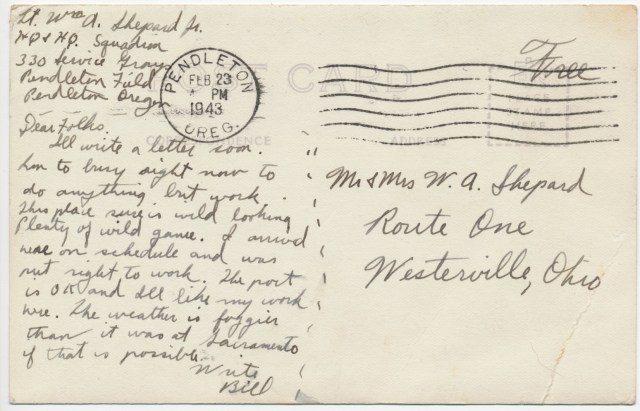 Lt. Wm A. Shepard Jr.
HQ & HQ. Squadron
330 Service Group
Pendleton Field
Pendleton Oregon
PENDLETON
FEB 23
PM
1943
OREG.
POST CARD
Free
PLACE
STAMP
HERE
CORRESPONDENCE
ADDRESS
Dear Folks.
I'll write a letter soon.
Am to busy right now to
do anything but work.
This place sure is wild looking
Plenty of wild game. I arrived
here on schedule and was
put right to work. The post
is OK and I'll like my work
here. The weather is foggier
than it was at Sacramento
if that is possible.
Write
Bill
Mr & Mrs W. A. Shepard
Route One
Westerville, Ohio